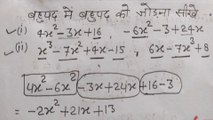 बहुपद में बहुपद को जोड़ना सीखें
(i) 4x²-3x+16, -6x²-3+24x
(ii) x³-7x²+4x-15, 6x-7x³+8
4x²-6x² -3x+24x +16-3
= -2x²+21x+13